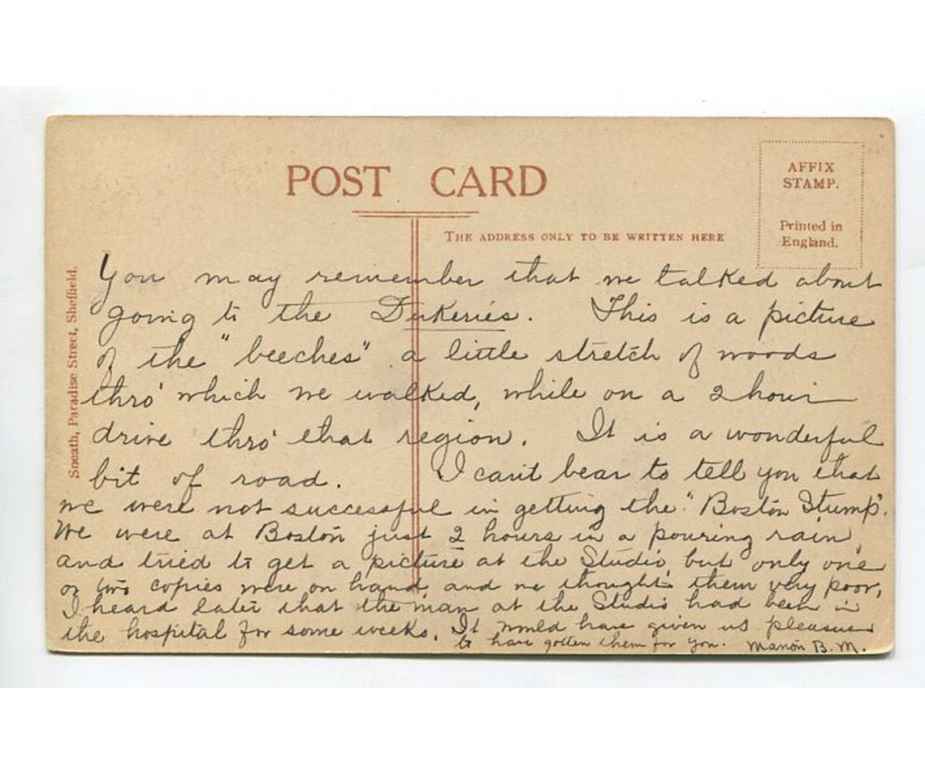 POST CARD
AFFIX
STAMP.
Printed in
England.
THE ADDRESS ONLY TO BE WRITTEN HERE
Sneath, Paradise Street, Sheffield.
You may remember that we talked about
going to the Dukeries. This is a picture
of the "beeches" a little stretch of woods
thro' which we walked, while on a 2 hour
drive thro' that region. It is a wonderful
bit of road. I can't bear to tell you that
we were not successful in getting the "Boston Stump".
We were at Boston just 2 hours in a pouring rain,
and tried to get a picture at the Studio, but only one
or two copies were on hand, and we thought them very poor,
I heard later that the man at the Studio had been in
the hospital for some weeks. It would have given us pleasure
to have gotten them for you. Marion B. M.